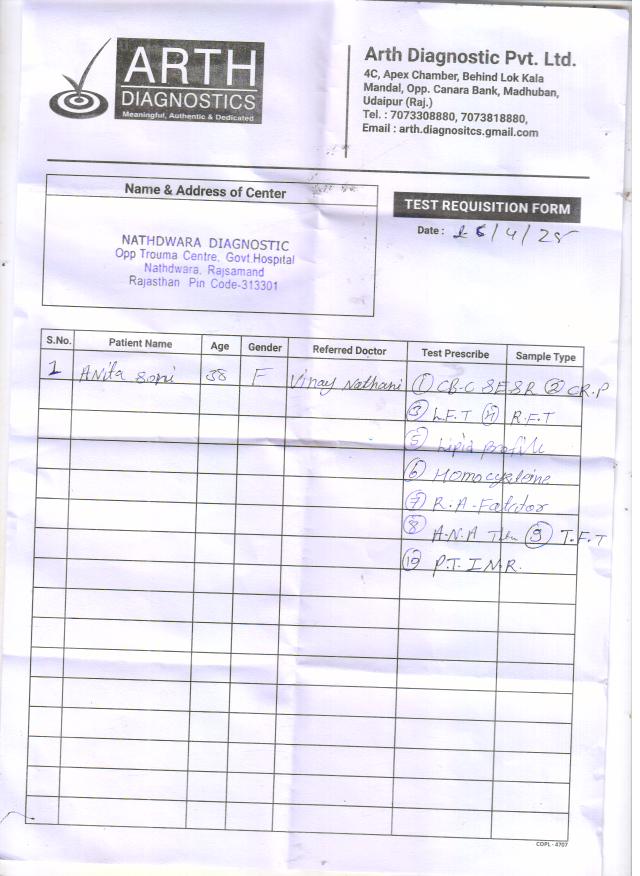 ARTH
DIAGNOSTICS
Meaningful, Authentic & Dedicated
Arth Diagnostic Pvt. Ltd.
4C, Apex Chamber, Behind Lok Kala
Mandal, Opp. Canara Bank, Madhuban,
Udaipur (Raj.)
Tel. : 7073308880, 7073818880,
Email : arth.diagnositcs.gmail.com
Name & Address of Center
NATHDWARA DIAGNOSTIC
Opp Trouma Centre, Govt.Hospital
Nathdwara, Rajsamand
Rajasthan Pin Code-313301
TEST REQUISITION FORM
Date : /4/25
S.No. Patient Name Age Gender Referred Doctor Test Prescribe Sample Type
1 Anita Soni 38 F Vinay Nathani ① CB.C SESR ② CR.P
③ L.F.T ④ R.F.T
⑤ Lipid profile
⑥ Homocysteine
⑦ R.A-Factor
⑧ A.N.A ⑨ T.F.T
⑩ P.T. I.N.R.
COPL - 4707